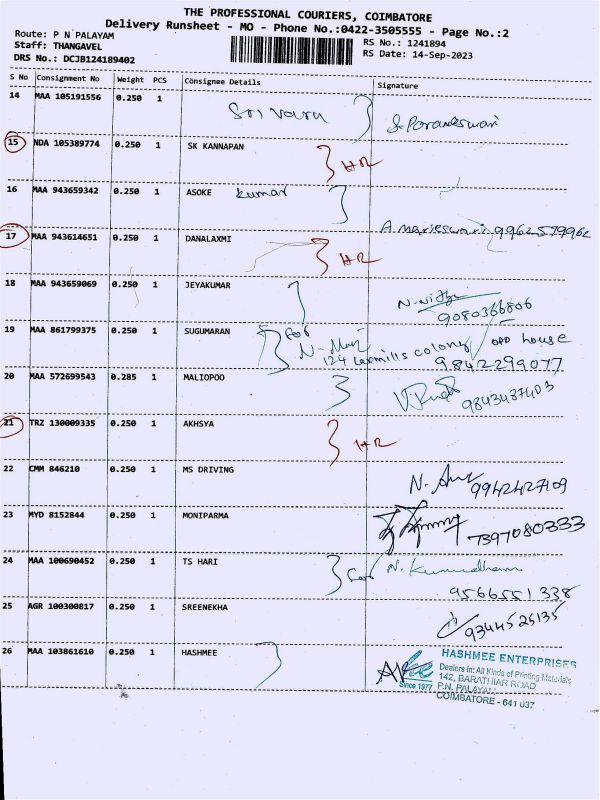 THE PROFESSIONAL COURIERS, COIMBATORE
Delivery Runsheet - MO - Phone No.:0422-3505555 - Page No.:2
Route: P N PALAYAM
Staff: THANGAVEL
DRS No.: DCJB124189402
RS No.: 1241894
RS Date: 14-Sep-2023
S No Consignment No Weight PCS Consignee Details Signature
14 MAA 105191556 0.250 1 Sri Varu S. Parameswari
15 NDA 105389774 0.250 1 SK KANNAPAN HR
16 MAA 943659342 0.250 1 ASOKE Kumar
A. Marieswari 9962579962
17 MAA 943614651 0.250 1 DANALAXMI HR
18 MAA 943659069 0.250 1 JEYAKUMAR N. Nithya
9080366806
19 MAA 861799375 0.250 1 SUGUMARAN for
124 Laxmills colony opp house
9842299077
20 MAA 572699543 0.285 1 MALIOPOO 9843487403
21 TRZ 130009335 0.250 1 AKHSYA HR
22 CMM 846210 0.250 1 MS DRIVING 9942427109
23 MYD 8152844 0.250 1 MONIPARMA 7397080333
24 MAA 100690452 0.250 1 TS HARI for N. Kumudham
9566551338
25 AGR 100300817 0.250 1 SREENEKHA 9344525135
26 MAA 103861610 0.250 1 HASHMEE
HASHMEE ENTERPRISES
Dealers in: All Kinds of Printing Materials
142, BARATHIAR ROAD
Since 1977 P.N. PALAYAM
COIMBATORE - 641 037